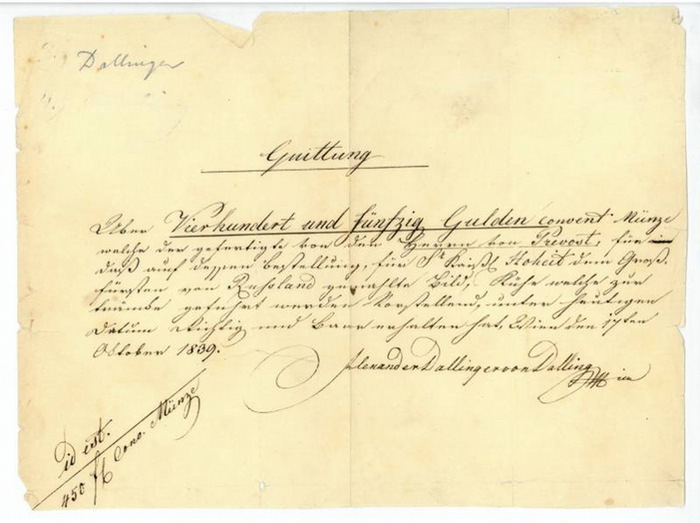 Dallinger
Quittung
Über Vierhundert und fünfzig Gulden convent Münze
welche der gefertigte von dem Herrn von Prevost, für
daß auf dessen Bestellung, für Sr Kaißl. Hoheit dem Groß-
fürsten von Rußland gemahlte Bild, Kühe welche zur
tränke geführt werden Vorstellend, unter heutigen
Datum richtig und Baar erhalten hat, Wien den 17ten
Oktober 1839.
Alexander Dallinger von Dalling
id est.
450 fl Conv. Münze